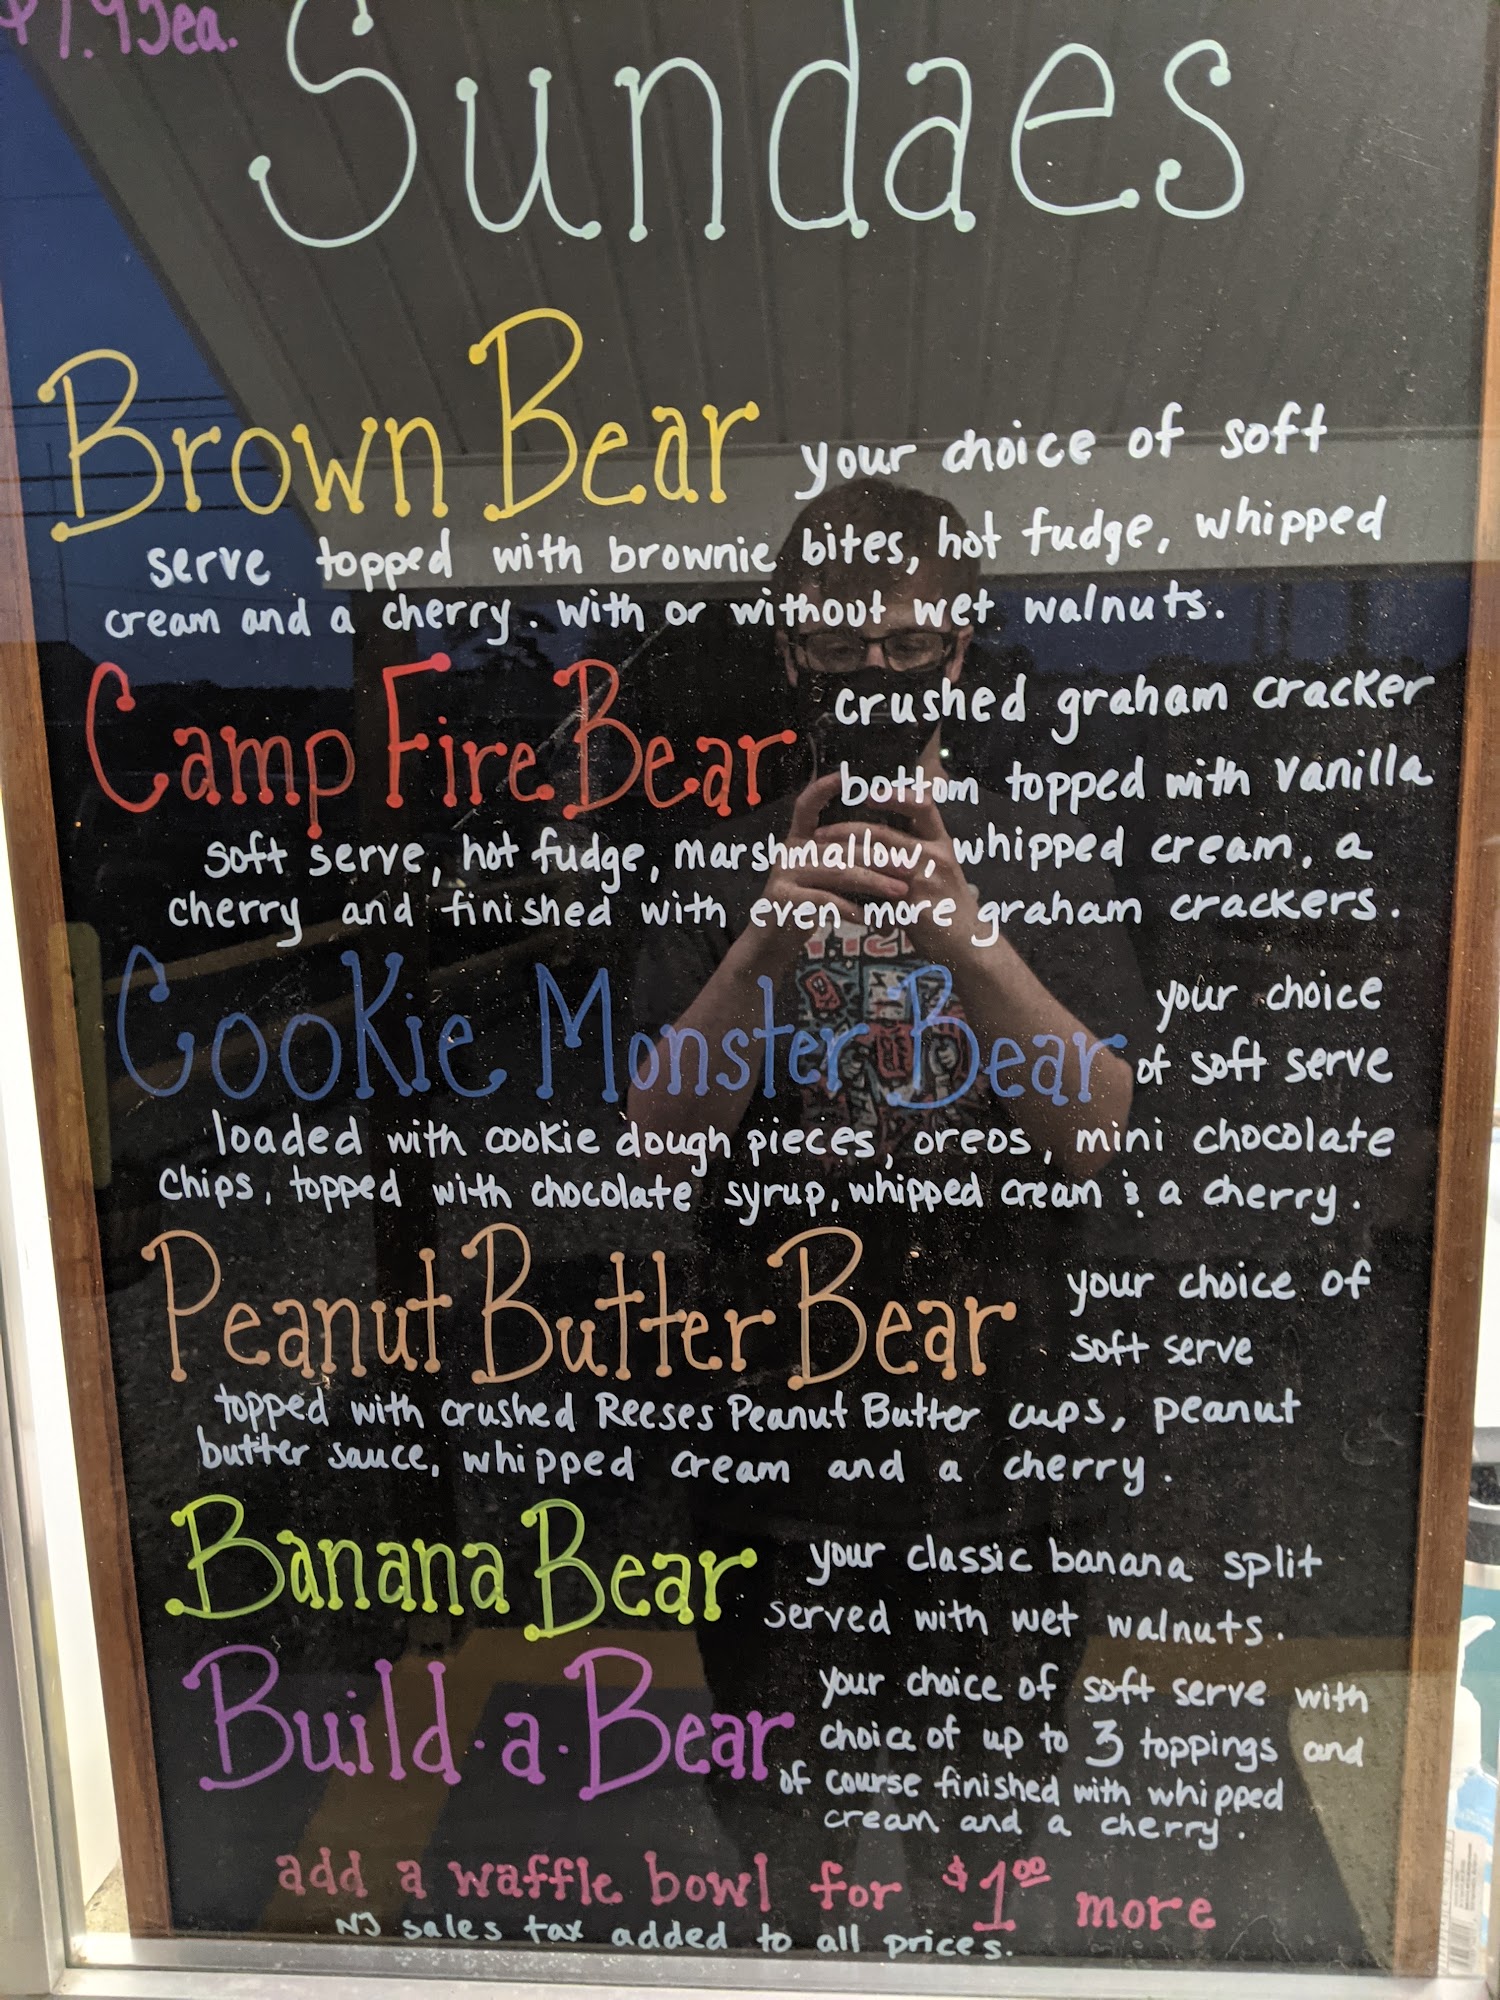 $7.95ea.
Sundaes
Brown Bear your choice of soft
serve topped with brownie bites, hot fudge, whipped
cream and a cherry. with or without wet walnuts.
Camp Fire Bear crushed graham cracker
bottom topped with vanilla
soft serve, hot fudge, marshmallow, whipped cream, a
cherry and finished with even more graham crackers.
Cookie Monster Bear your choice
of soft serve
loaded with cookie dough pieces, oreos, mini chocolate
chips, topped with chocolate syrup, whipped cream & a cherry.
Peanut Butter Bear your choice of
soft serve
topped with crushed Reeses Peanut Butter cups, peanut
butter sauce, whipped cream and a cherry.
Banana Bear your classic banana split
served with wet walnuts.
Build·a·Bear your choice of soft serve with
choice of up to 3 toppings and
of course finished with whipped
cream and a cherry.
add a waffle bowl for $1.00 more
NJ sales tax added to all prices.